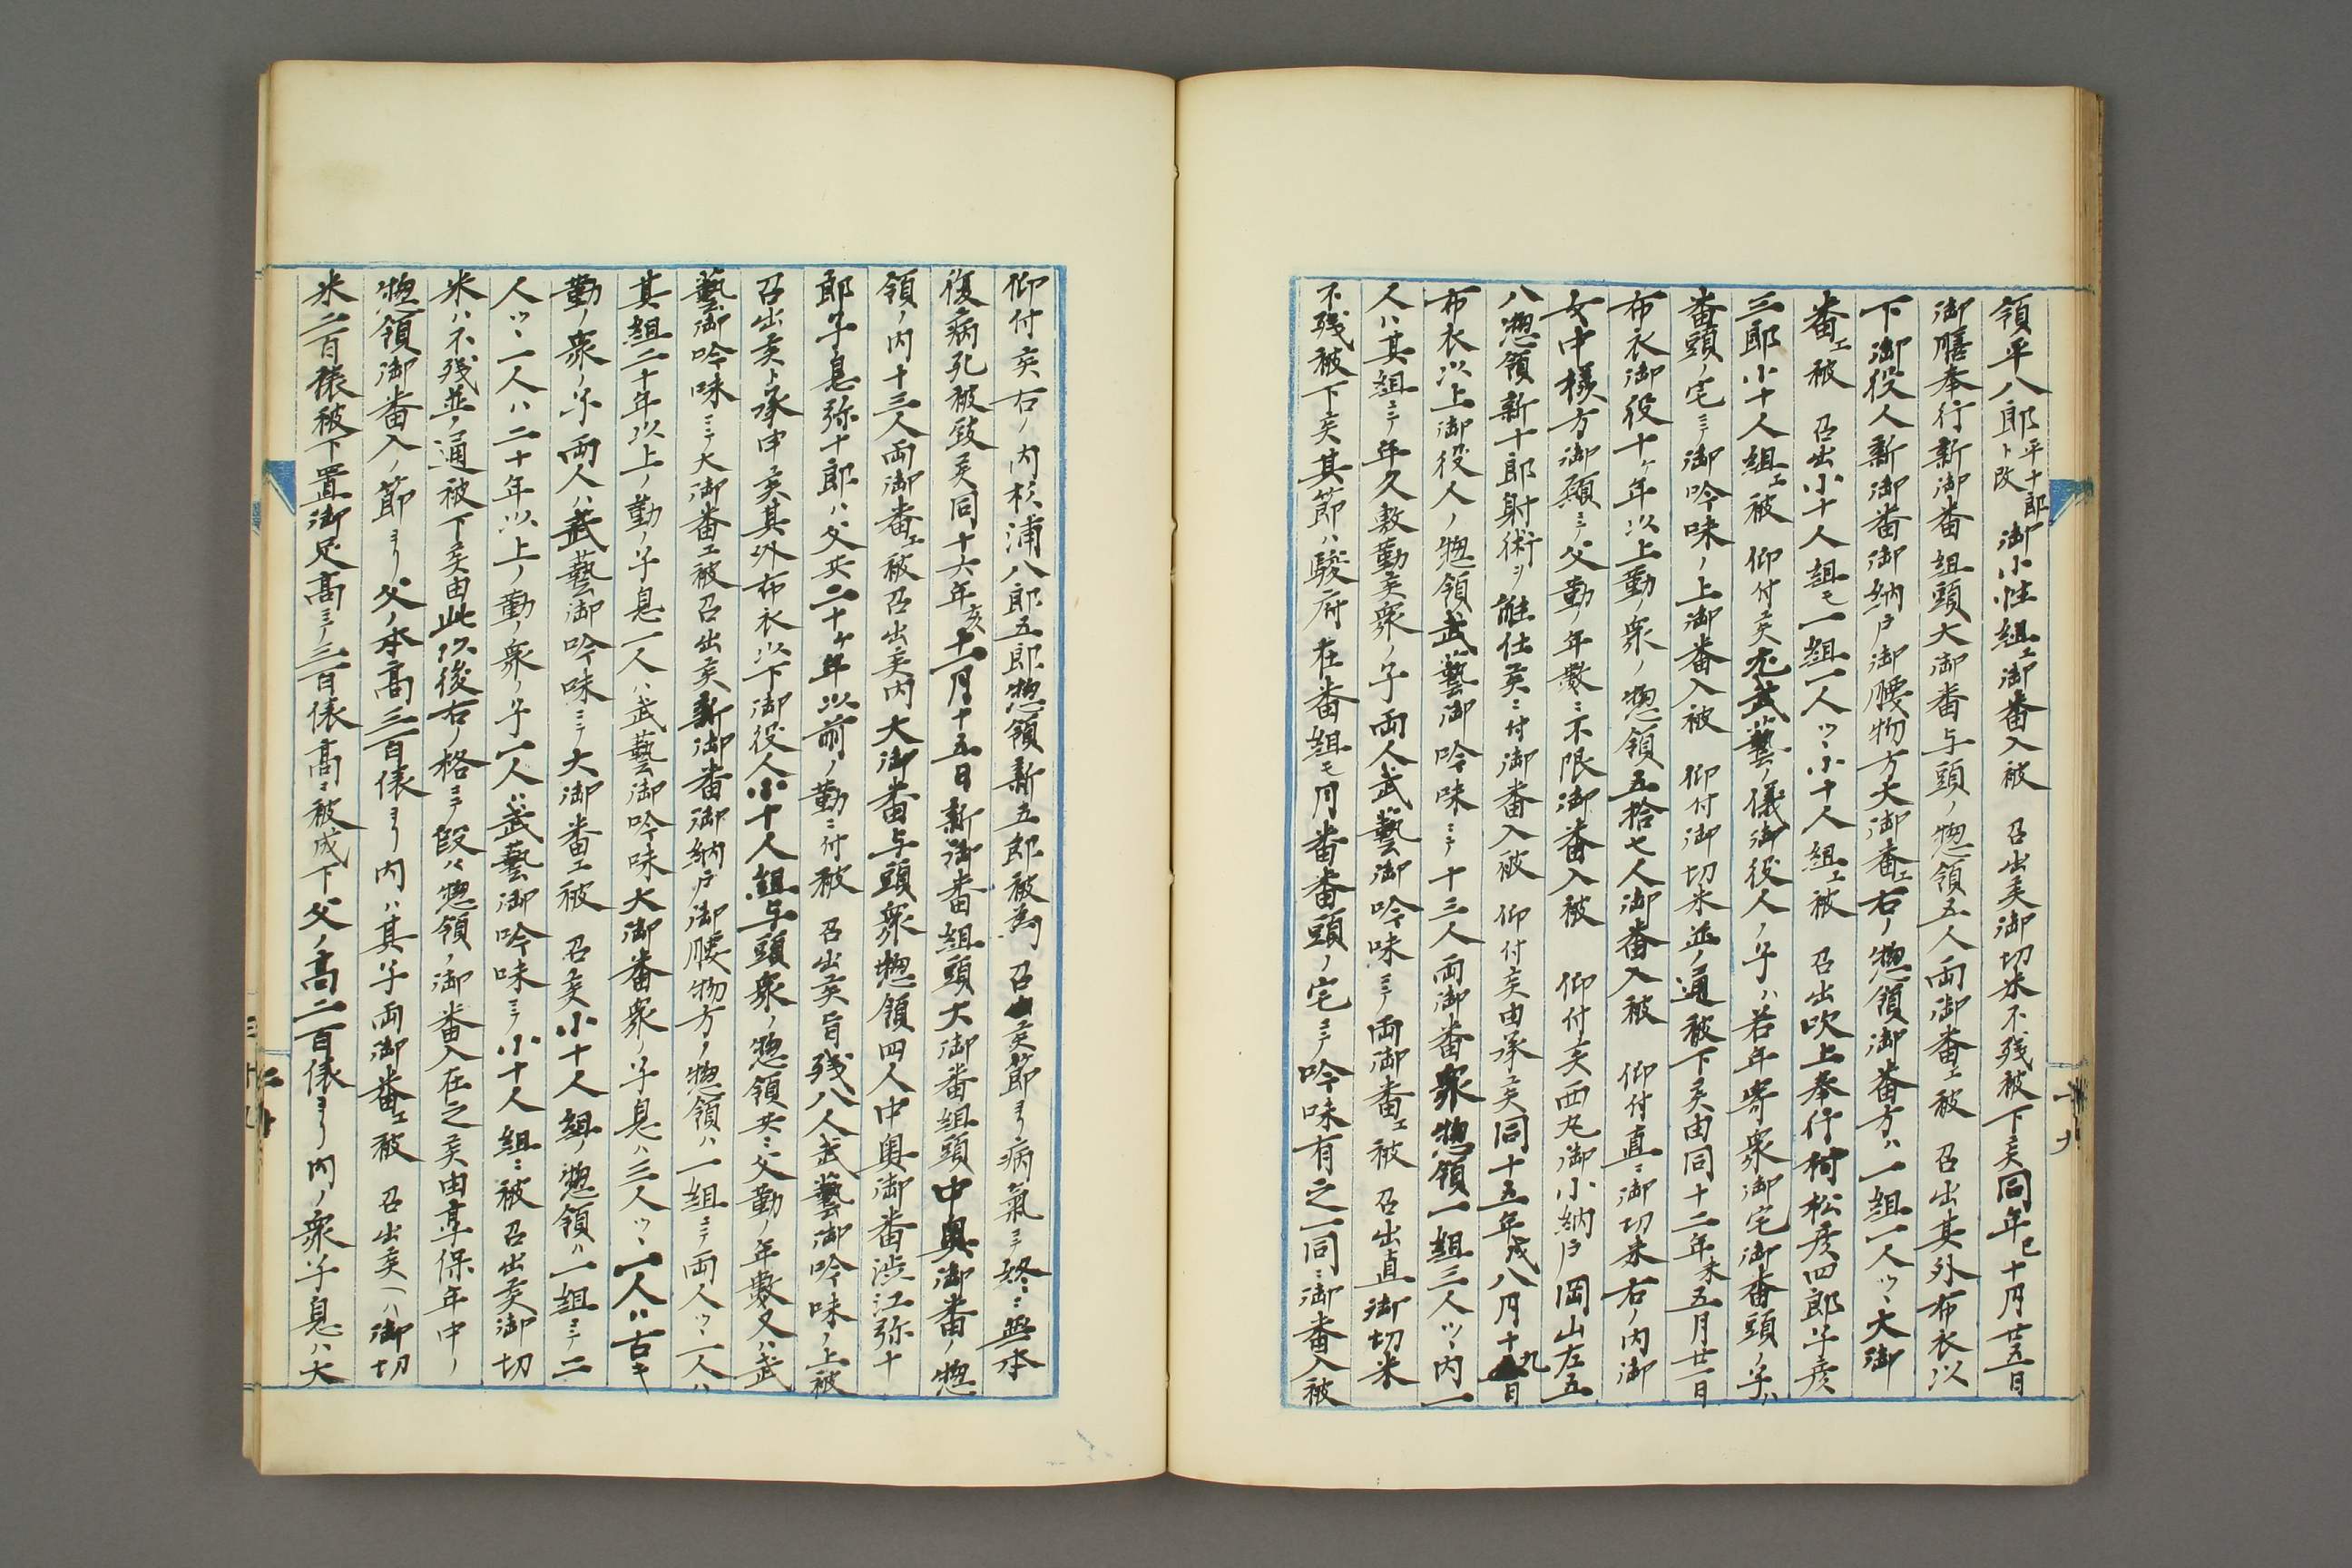 領平八郎平十郎ト改御小性組エ御番入被　召出候御切米不残被下候同年巳十月廿五日
御膳奉行新御番組頭大御番与頭ノ惣領五人両御番エ被　召出其外布衣以
下御役人新御番御納戸御腰物方大御番エ右ノ惣領御番方ハ一組一人ツヽ大御
番エ被　召出小十人組モ一組一人ツヽ小十人組エ被　召出吹上奉行村松彦四郎子彦
三郎小十人組エ被　仰付候尤武藝ノ儀御役人ノ子ハ若年寄衆御宅御番頭ノ子ハ
番頭ノ宅ニテ御吟味ノ上御番入被　仰付御切米並ノ通被下候由同十二年未五月廿一日
布衣御役十ケ年以上勤ノ衆ノ惣領五拾七人御番入被　仰付直ニ御切米右ノ内御
女中様方御願ニテ父勤ノ年数ニ不限御番入被　仰付候西丸御小納戸岡山左五
八惣領新十郎射術ヲ能仕候ニ付御番入被　仰付候由承候同十五年戌八月十九日
布衣以上御役人ノ惣領武藝御吟味ニテ十三人両御番衆惣領一組三人ツヽ内一
人ハ其組ニテ年久敷勤候衆ノ子両人武藝御吟味ニテ両御番エ被　召出直御切米
不残被下候其節ハ駿府在番組モ月番番頭ノ宅ニテ吟味有之一同ニ御番入被
一九
仰付候右ノ内杉浦八郎五郎惣領新五郎被為　召候節ヨリ病氣ニテ終ニ無本
復病死被致候同十六年亥十一月十五日新御番組頭大御番組頭中奥御番ノ惣
領ノ内十三人両御番エ被召出候内大御番与頭衆惣領四人中奥御番渋江弥十
郎子息弥十郎ハ父共二十ケ年以前ノ勤ニ付被　召出候旨残八人武藝御吟味ノ上被
召出候ト承申候其外布衣以下御役人小十人組与頭衆ノ惣領共ニ父勤ノ年数又ハ武
藝御吟味ニテ大御番エ被召出候新御番御納戸御腰物方ノ惣領ハ一組ニテ両人ツヽ一人ハ
其組二十年以上ノ勤ノ子息一人ハ武藝御吟味大御番衆ノ子息ハ三人ツヽ一人ハ古キ
勤ノ衆ノ子両人ハ武藝御吟味ニテ大御番エ被　召候小十人組ノ惣領ハ一組ニテ二
人ツヽ一人ハ二十年以上ノ勤ノ衆ノ子一人ハ武藝御吟味ニテ小十人組ニ被召出候御切
米ハ不残並ノ通被下候由此以後右ノ格ニテ段々惣領ノ御番入在之候由享保年中ノ
惣領御番入ノ節ヨリ父ノ本高三百俵ヨリ内ハ其子両御番エ被　召出候ヘハ御切
米二百俵被下置御足高ニテ三百俵高ニ被成下父ノ高二百俵ヨリ内ノ衆子息ハ大